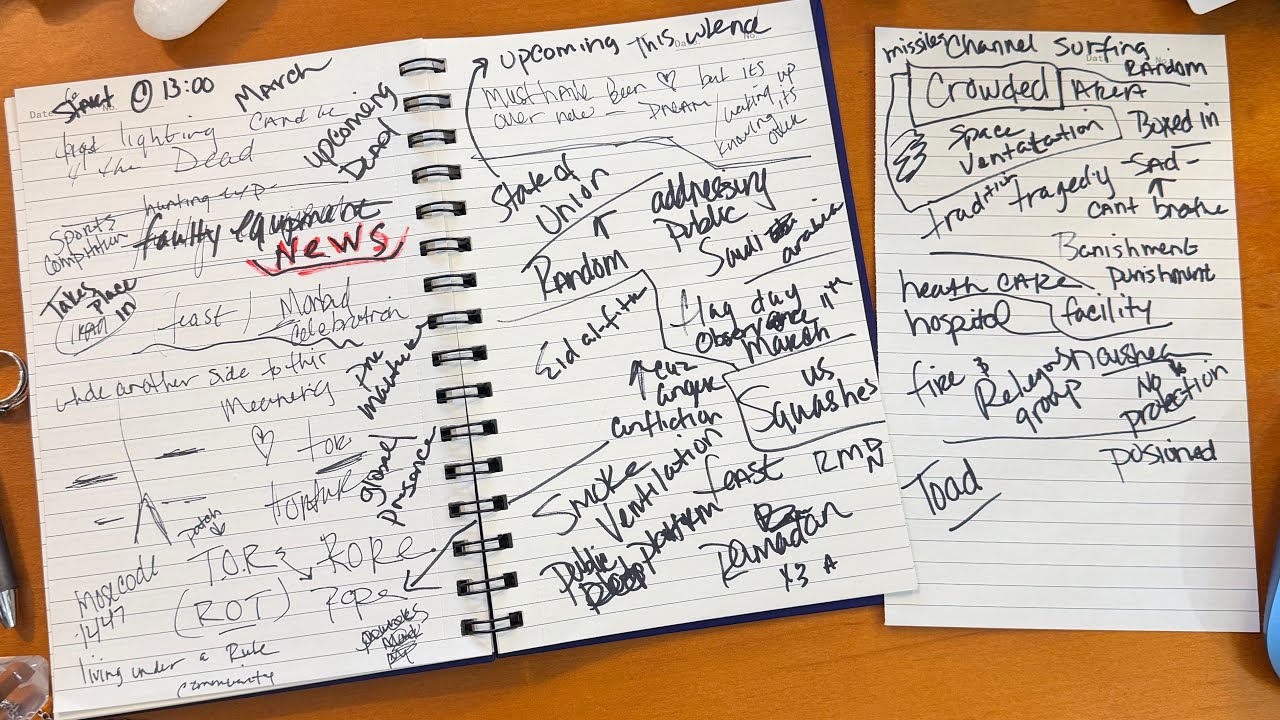 START 13:00
March
lighting candle
4 the Dead
upcoming
Dead
hunting
Sports
competition
faulty equipment
NEWS
Takes
place
IN
feast / Morbid
celebration
whole another side to this
Meaning
pre
mature
♡ tor
torture
global
presence
patch
T.O.R & ROPE
(ROT) Pope
Morse code
1447
living under a Rule
community
upcoming this wkend
Must have been ♡ but its
over now — DREAM / waking up
knowing its
over
State of
Union
addressing
public
Random
Saudi
arabia
Eid al-fitr
flag day
Observance 11th
March
cuz
anger
confliction
US
Squashes
Smoke
Ventilation
feast
RMDN
Public
platform
Ramadan
x3 A
missiles Channel Surfing
RANdom
Crowded
Alert
Space
Ventatation
Boxed in
SAD
tradition
tragedy
CANT brathe
Banishment
punishment
heath CARE
hospital
facility
fire &
Relegos
group
Naushea
No
protection
posioned
Toad